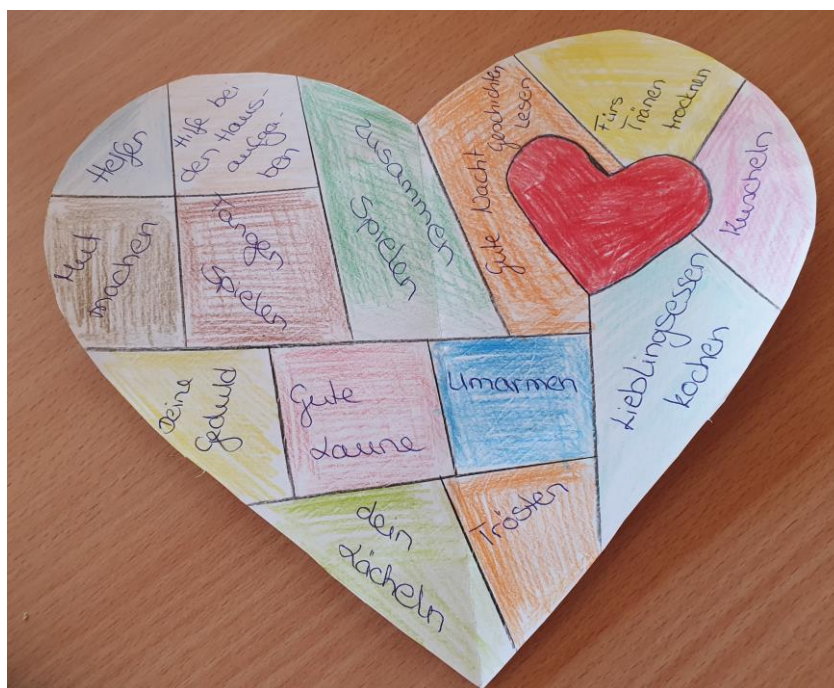 Helfen
Hilfe bei
den Haus-
aufga-
ben
Zusammen
Spielen
Gute Nacht Geschichten
Lesen
Fürs
Tränen
trocknen
Kuscheln
Mut
machen
Fangen
Spielen
Lieblingsessen
kochen
Deine
Geduld
Gute
Laune
Umarmen
dein
Lächeln
Trösten